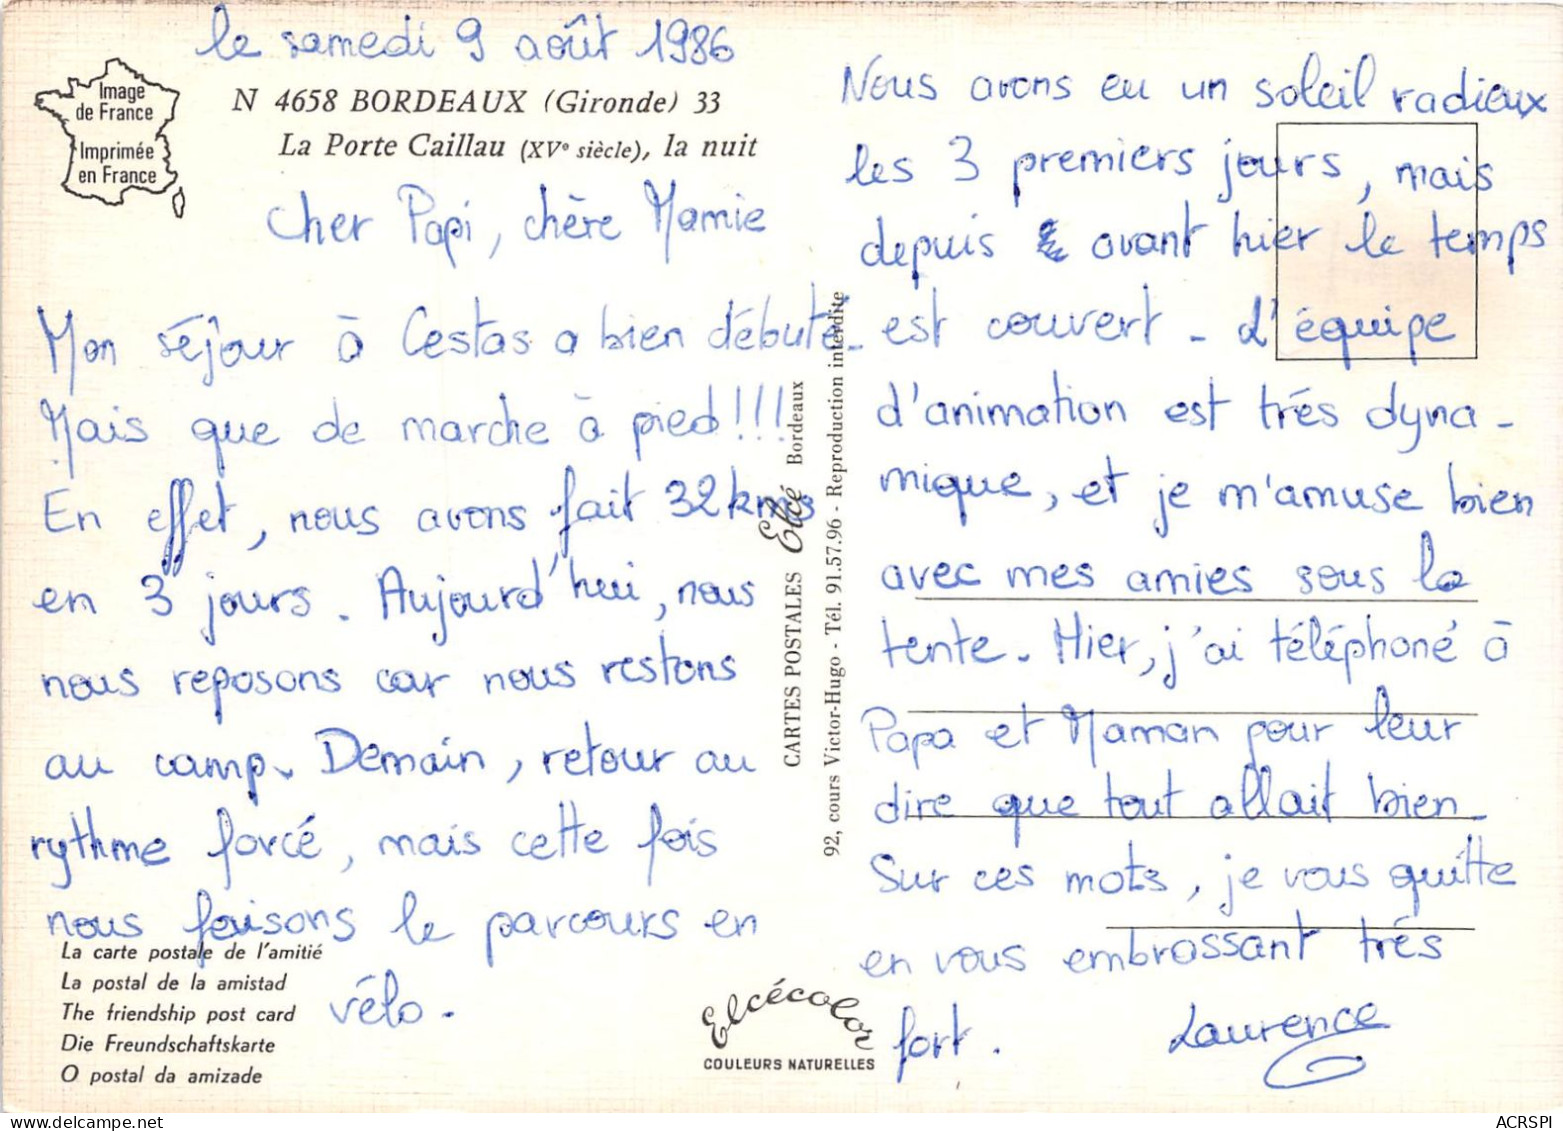 le samedi 9 août 1986
Image
de France
Imprimée
en France
N 4658 BORDEAUX (Gironde) 33
La Porte Caillau (XVe siècle), la nuit
Cher Papi, chère Mamie
Mon séjour à Cestas a bien débuté.
Mais que de marche à pied!!!
En effet, nous avons fait 32 kms
en 3 jours. Aujourd'hui, nous
nous reposons car nous restons
au camp. Demain, retour au
rythme forcé, mais cette fois
nous faisons le parcours en
vélo.
La carte postale de l'amitié
La postal de la amistad
The friendship post card
Die Freundschaftskarte
O postal da amizade
CARTES POSTALES Elcé Bordeaux
92, cours Victor-Hugo - Tél. 91.57.96 - Reproduction interdite
Elcécolor
COULEURS NATURELLES
Nous avons eu un soleil radieux
les 3 premiers jours, mais
depuis avant hier le temps
est couvert - L'équipe
d'animation est très dyna-
mique, et je m'amuse bien
avec mes amies sous la
tente. Hier, j'ai téléphoné à
Papa et Maman pour leur
dire que tout allait bien.
Sur ces mots, je vous quitte
en vous embrassant très
fort. Laurence
ACRSPI